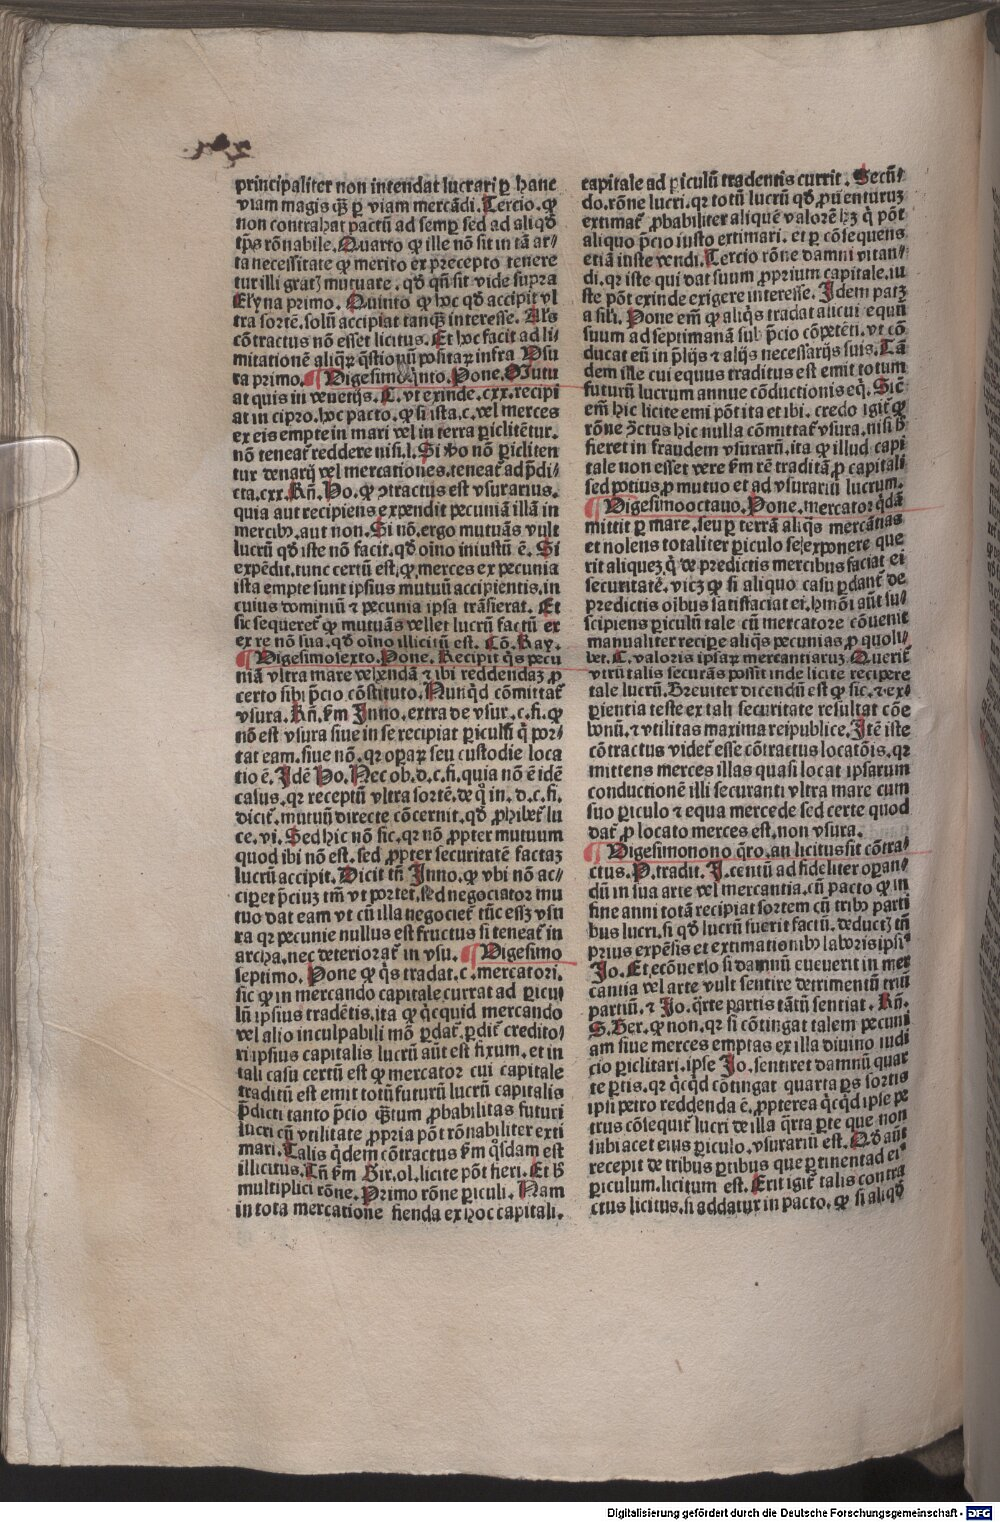 principaliter non intendat lucrari ꝑ hanc
viam magis qꝫ ꝑ viam mercãdi. Tercio. ꝙ
non contrahat pactũ ad semꝑ sed ad aliqď
tꝑs rõnabile. Quarto ꝙ ille nõ sit in tã ar⸗
ta necessitate ꝙ merito ex precepto tenere
tur illi gratꝫ mutuare. qď qñ sit vide supra
Elẏna primo. Quinto ꝙ hoc qď accipit vl
tra sortẽ. solũ accipiat tanqꝫ interesse. Als
cõtractus nõ esset licitus. Et hoc facit ad li⸗
mitationẽ aliqꝝ q̃stionũ positaꝝ infra Vsu
ra primo. ¶ Vigesimoq̃nto. Pone. Mutu
at quis in venetijs. C. vt exinde. cxx. recipi
at in cipro. hoc pacto. ꝙ si ista. c. vel merces
ex eis empte in mari vel in terra ꝑiclitẽtur.
nõ teneat̃ reddere nisi. l. Si ỽo nõ ꝑicliten
tur denarij vel mercationes. teneat̃ ad p̃di⸗
cta. cxx. Rñ. Ho. ꝙ ꝯtractus est vsurarius.
quia aut recipiens expendit pecuniã illã in
mercibꝰ. aut non. Si nõ. ergo mutuãs vult
lucrũ qď iste nõ facit. qď oĩno iniustũ ẽ. Si
expẽdit. tunc certũ est. ꝙ merces ex pecunia
ista empte sunt ipsius mutuũ accipientis. in
cuius dominiũ ⁊ pecunia ipsa trãsierat. Et
sic sequeret̃ ꝙ mutuãs vellet lucrũ factũ ex
ex re nõ sua. qď oĩno illicitũ est. Cõ. Ray.
¶ Vigesimosexto. Pone. Recipit q̃s pecu
niã vltra mare vehendã ⁊ ibi reddendaꝫ ꝓ
certo sibi p̃cio cõstituto. Nunqď cõmittat̃
vsura. Rñ. ẜm Inno. extra de vsur. c. fi. ꝙ
nõ est vsura siue in se recipiat ꝑiculũ q̃ por⸗
tat eam. siue nõ. qꝛ oꝑaꝝ seu custodie loca
tio ẽ. Idẽ Ho. Nec ob. d. c. fi. quia nõ ẽ idẽ
casus. qꝛ receptũ vltra sortẽ. de q̃ in. d. c. fi.
dicit̃. mutuũ directe cõcernit. qď ꝓhibet̃ lu
ce. vi. Sed hic nõ sic. qꝛ nõ ꝓpter mutuum
quod ibi nõ est. sed ꝓpter securitatẽ factaꝫ
lucrũ accipit. Dicit tñ Inno. ꝙ vbi nõ ac⸗
ciꝑet p̃ciuꝫ tm̃ vt portet. sed negociator mu
tuo dat eam vt cũ illa negociet̃ tũc essꝫ vsu
ra qꝛ pecunie nullus est fructus si teneat̃ in
archa. nec deteriorat̃ in vsu. ¶ Vigesimo
septimo. Pone ꝙ q̃s tradat. c. mercatori.
sic ꝙ in mercando capitale currat ad ꝑicu⸗
lũ ipsius tradẽtis. ita ꝙ q̃cquid mercando
vel alio inculpabili mõ ꝑdat̃. ꝑdit̃ credito⸗
ri ipsius capitalis lucrũ aũt est fixum. et in
tali casu certũ est ꝙ mercator cui capitale
traditũ est emit totũ futurũ lucrũ capitalis
p̃dicti tanto p̃cio qꝫtum ꝓbabilitas futuri
lucri cũ vtilitate ꝓpria põt rõnabiliter exti
mari. Talis q̃dem cõtractus ẜm q̃sdam est
illicitus. Tñ ẜm Bir. ol. licite põt fieri. Et ħ
multiplici rõne. Primo rõne ꝑiculi. Nam
in tota mercatione fienda ex hoc capitali.
capitale ad ꝑiculũ tradentis currit. Secũ⸗
do. rõne lucri. qꝛ totũ lucrũ qď ꝓuenturuꝫ
extimat̃ ꝓbabiliter aliquẽ valorẽ hꝫ q̃ põt
aliquo p̃cio iusto extimari. et ꝑ cõsequens
etiã iuste vendi. Tercio rõne damni vitan⸗
di. qꝛ iste qui dat suum ꝓprium capitale. iu
ste põt exinde exigere interesse. Idem patꝫ
a sil̃i. Pone em̃ ꝙ aliq̃s tradat alicui equũ
suum ad septimanã sub p̃cio cõpetẽti. vt cõ
ducat eũ in p̃lijs ⁊ alijs necessarijs suis. Tã
dem ille cui equus traditus est emit totum
futurũ lucrum annue cõductionis eq̃. Sic̃
em̃ hic licite emi põt ita et ibi. credo igit̃ ꝙ
rõne ꝯctus hic nulla cõmittat̃ vsura. nisi ħ
fieret in fraudem vsurarũ. ita ꝙ illud capi
tale non esset vere ẜm rẽ traditã ꝓ capitali
sed potius ꝓ mutuo et ad vsurariũ lucrum.
¶ Vigesimooctauo. Pone. mercator q̃dã
mittit ꝑ mare. seu ꝑ terrã aliq̃s mercãtias
et nolens totaliter ꝑiculo se exponere que
rit aliquez q̃ de predictis mercibus faciat ei
securitatẽ. vicꝫ ꝙ si aliquo casu ꝑdant̃ de
p̃redictis oĩbus satisfaciat ei. hmõi aũt su⸗
scipiens ꝑiculũ tale cũ mercatore cõuenit
manualiter reciꝑe aliq̃s pecunias ꝓ quoli⸗
bet. C. valoris ipsaꝝ mercantiaruꝫ. Querit̃
virũ talis securãs possit inde licite recipere
tale lucrũ. Breuiter dicendũ est ꝙ sic. ⁊ ex⸗
ꝑientia teste ex tali securitate resultat cõe
bonũ. ⁊ vtilitas maxima reipublice. Itẽ iste
cõtractus videt̃ esse cõtractus locatõis. qꝛ
mittens merces illas quasi locat ipsarum
conductionẽ illi securanti vltra mare cum
suo ꝑiculo ⁊ equa mercede sed certe quod
dat̃ ꝓ locato merces est. non vsura.
¶ Vigesimonono q̃ro. an licitus sit cõtra⸗
ctus. P. tradit. J. centũ ad fideliter oꝑan⸗
dũ in sua arte vel mercantia. cũ pacto ꝙ in
fine anni totã recipiat sortem cũ tribꝰ parti
bus lucri. si qď lucrũ fuerit factũ. deductꝫ tñ
prius expẽsis et extimationibꝰ laboris ipsiꝰ
Jo. Et ecõuerso si damnũ eueuerit in mer
cantia vel arte vult sentire detrimentũ triũ
partiũ. ⁊ Jo. q̃rte partis tãtũ sentiat. Rñ.
S. Ber. ꝙ non. qꝛ si cõtingat talem pecuni
am siue merces emptas ex illa diuino iudi
cio ꝑiclitari. ipse Jo. sentiret damnũ quar
te ꝑtis. qꝛ q̃cqď cõtingat quarta ꝑs sortis
ipsi petro reddenda ẽ. ꝓpterea q̃cqď ipse pe
trus cõsequit̃ lucri de illa q̃rta ꝑte que non
subiacet eius ꝑiculo. vsurariũ est. Qď aũt
recepit de tribus ꝑtibus que ꝑtinent ad eiꝰ
ꝑiculum. licitum est. Erit igit̃ talis contra
ctus licitus. si addatur in pacto. ꝙ si aliqď
Digitalisierung gefördert durch die Deutsche Forschungsgemeinschaft - DFG